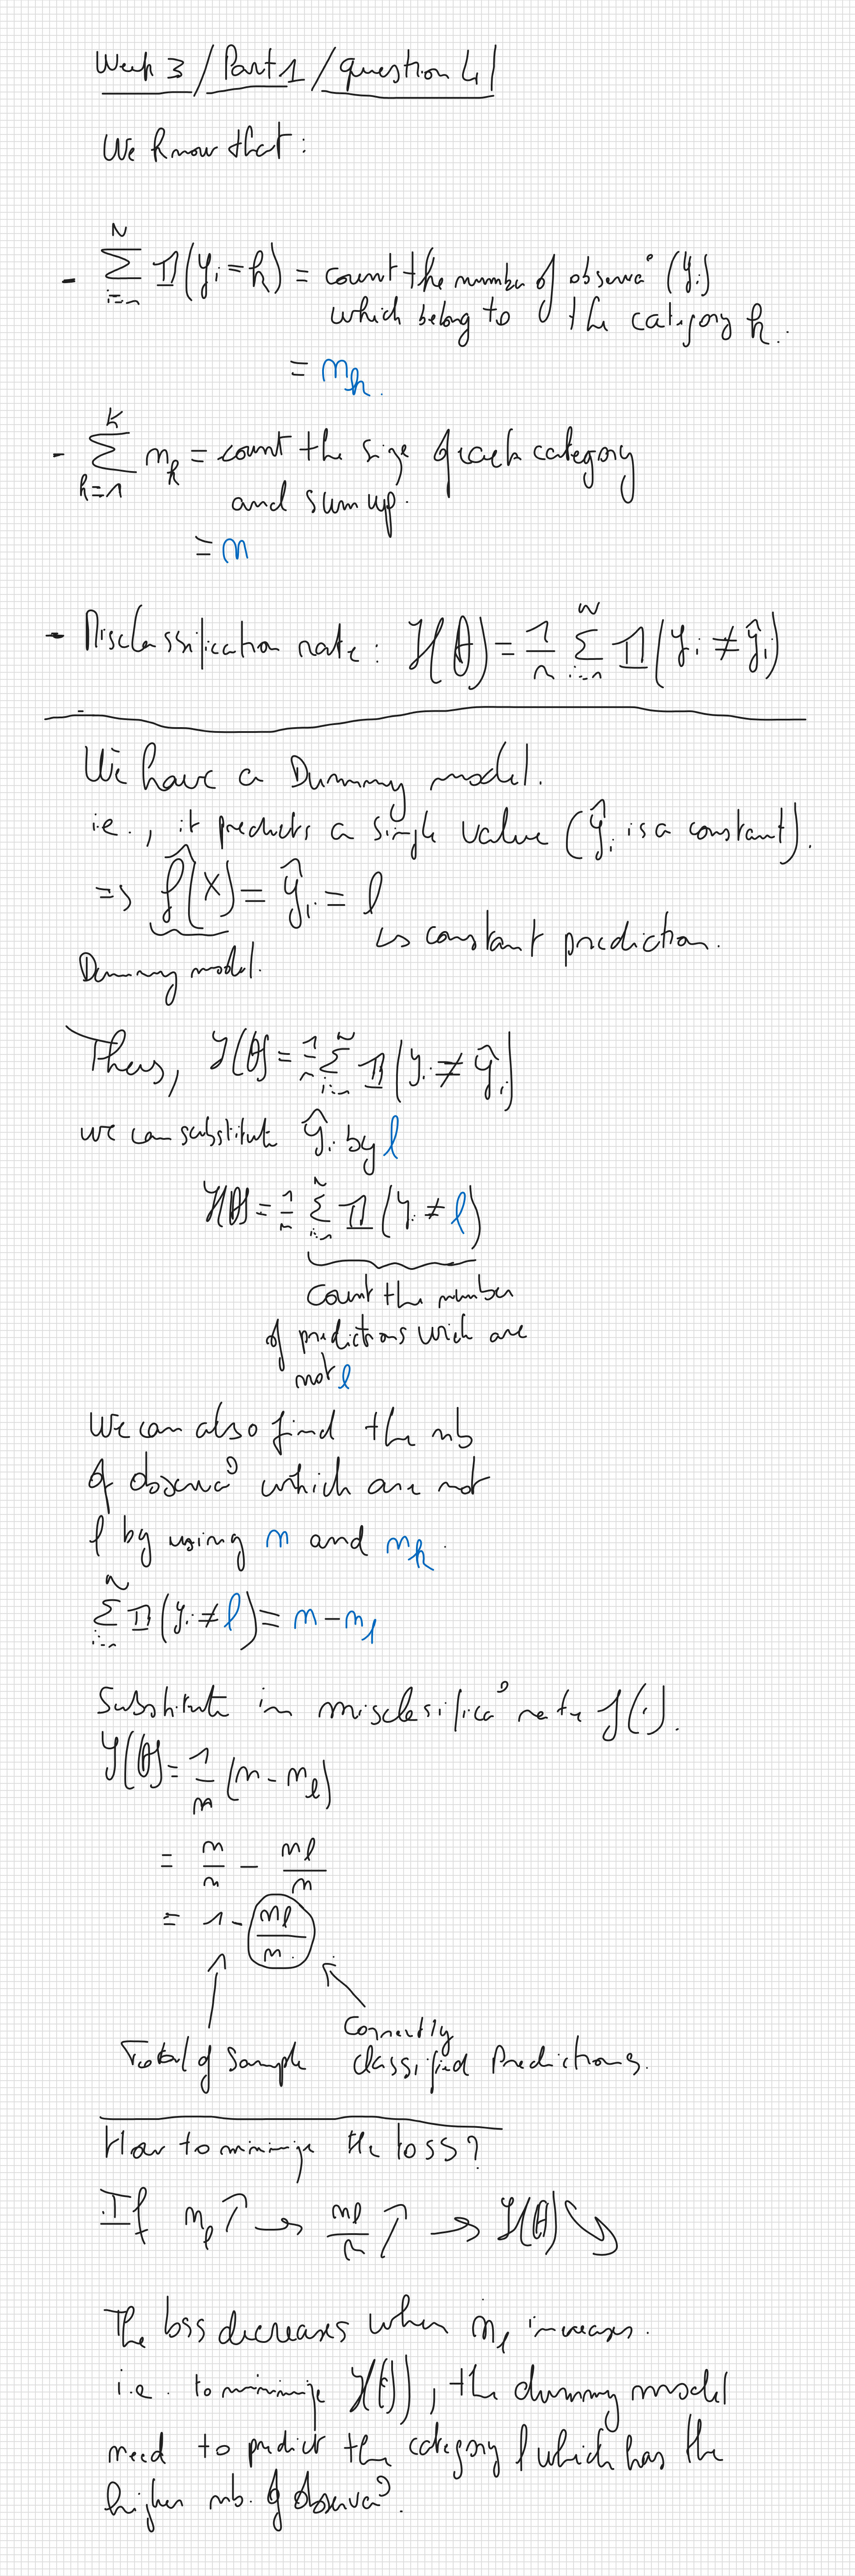 Week 3 / Part 1 / question 4
We know that:
- \sum_{i=1}^{N} 𝟙(y_i = k) = count the number of observa° (y_i)
which belong to the category k.
= n_k.
- \sum_{k=1}^{K} n_k = count the size of each category
and sum up.
= n
- Misclassification rate: J(θ) = \frac{1}{n} \sum_{i=1}^{n} 𝟙(y_i ≠ ŷ_i)
We have a Dummy model.
i.e., it predicts a single value (ŷ_i is a constant).
=> f̂(x) = ŷ_i = l
↳ constant prediction.
Dummy model.
Thus, J(θ) = \frac{1}{n} \sum_{i=1}^{n} 𝟙(y_i ≠ ŷ_i)
we can substitute ŷ_i by l
J(θ) = \frac{1}{n} \sum_{i=1}^{n} 𝟙(y_i ≠ l)
Count the number
of predictions wich are
not l
We can also find the nb
of observa° which are not
l by using n and n_k.
\sum_{i=1}^{n} 𝟙(y_i ≠ l) = n - n_l
Substitute in misclasifica° rate J(.).
J(θ) = \frac{1}{n} (n - n_l)
= \frac{n}{n} - \frac{n_l}{n}
= 1 - \frac{n_l}{n}
Correctly
Total of Sample classified Predictions.
How to minimize the loss?
If n_l ↑ → \frac{n_l}{n} ↑ → J(θ) ↘
The loss decreases when n_l increases.
i.e. to minimize J(θ), the dummy model
need to predict the category l which has the
higher nb. of observa°.